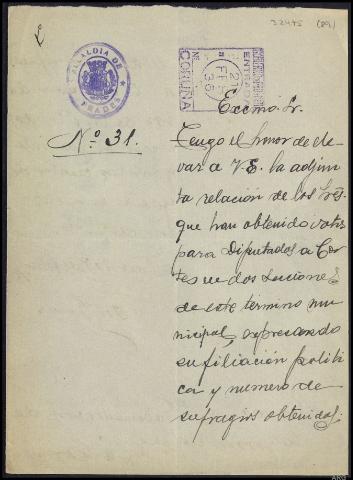 32475 (89)
2
ALCALDIA DE
FRADES
ENTRADA
21
FEB
36
CORUÑA
Excmo. Sr.
Nº 31.
Tengo el honor de ele-
var a V.E. la adjun-
ta relación de los Sres.
que han obtenido votos
para Diputados a Cor-
tes en dos Secciones
de este término mu-
nicipal, expresando
su filiación políti-
ca y numero de
sufragios obtenidos.